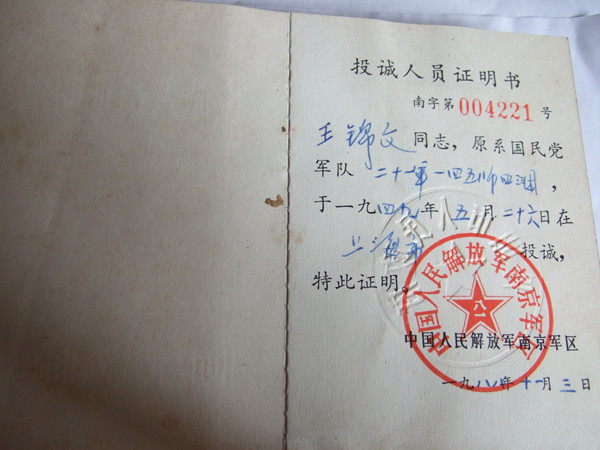 投诚人员证明书
南字第004221号
王锦文同志，原系国民党
军队二十一军一四五师四三团，
于一九四九年五月二十六日在
上海市投诚，
特此证明。
中国人民解放军南京军区
中国人民解放军南京军区
八一
一九八八年十一月三日